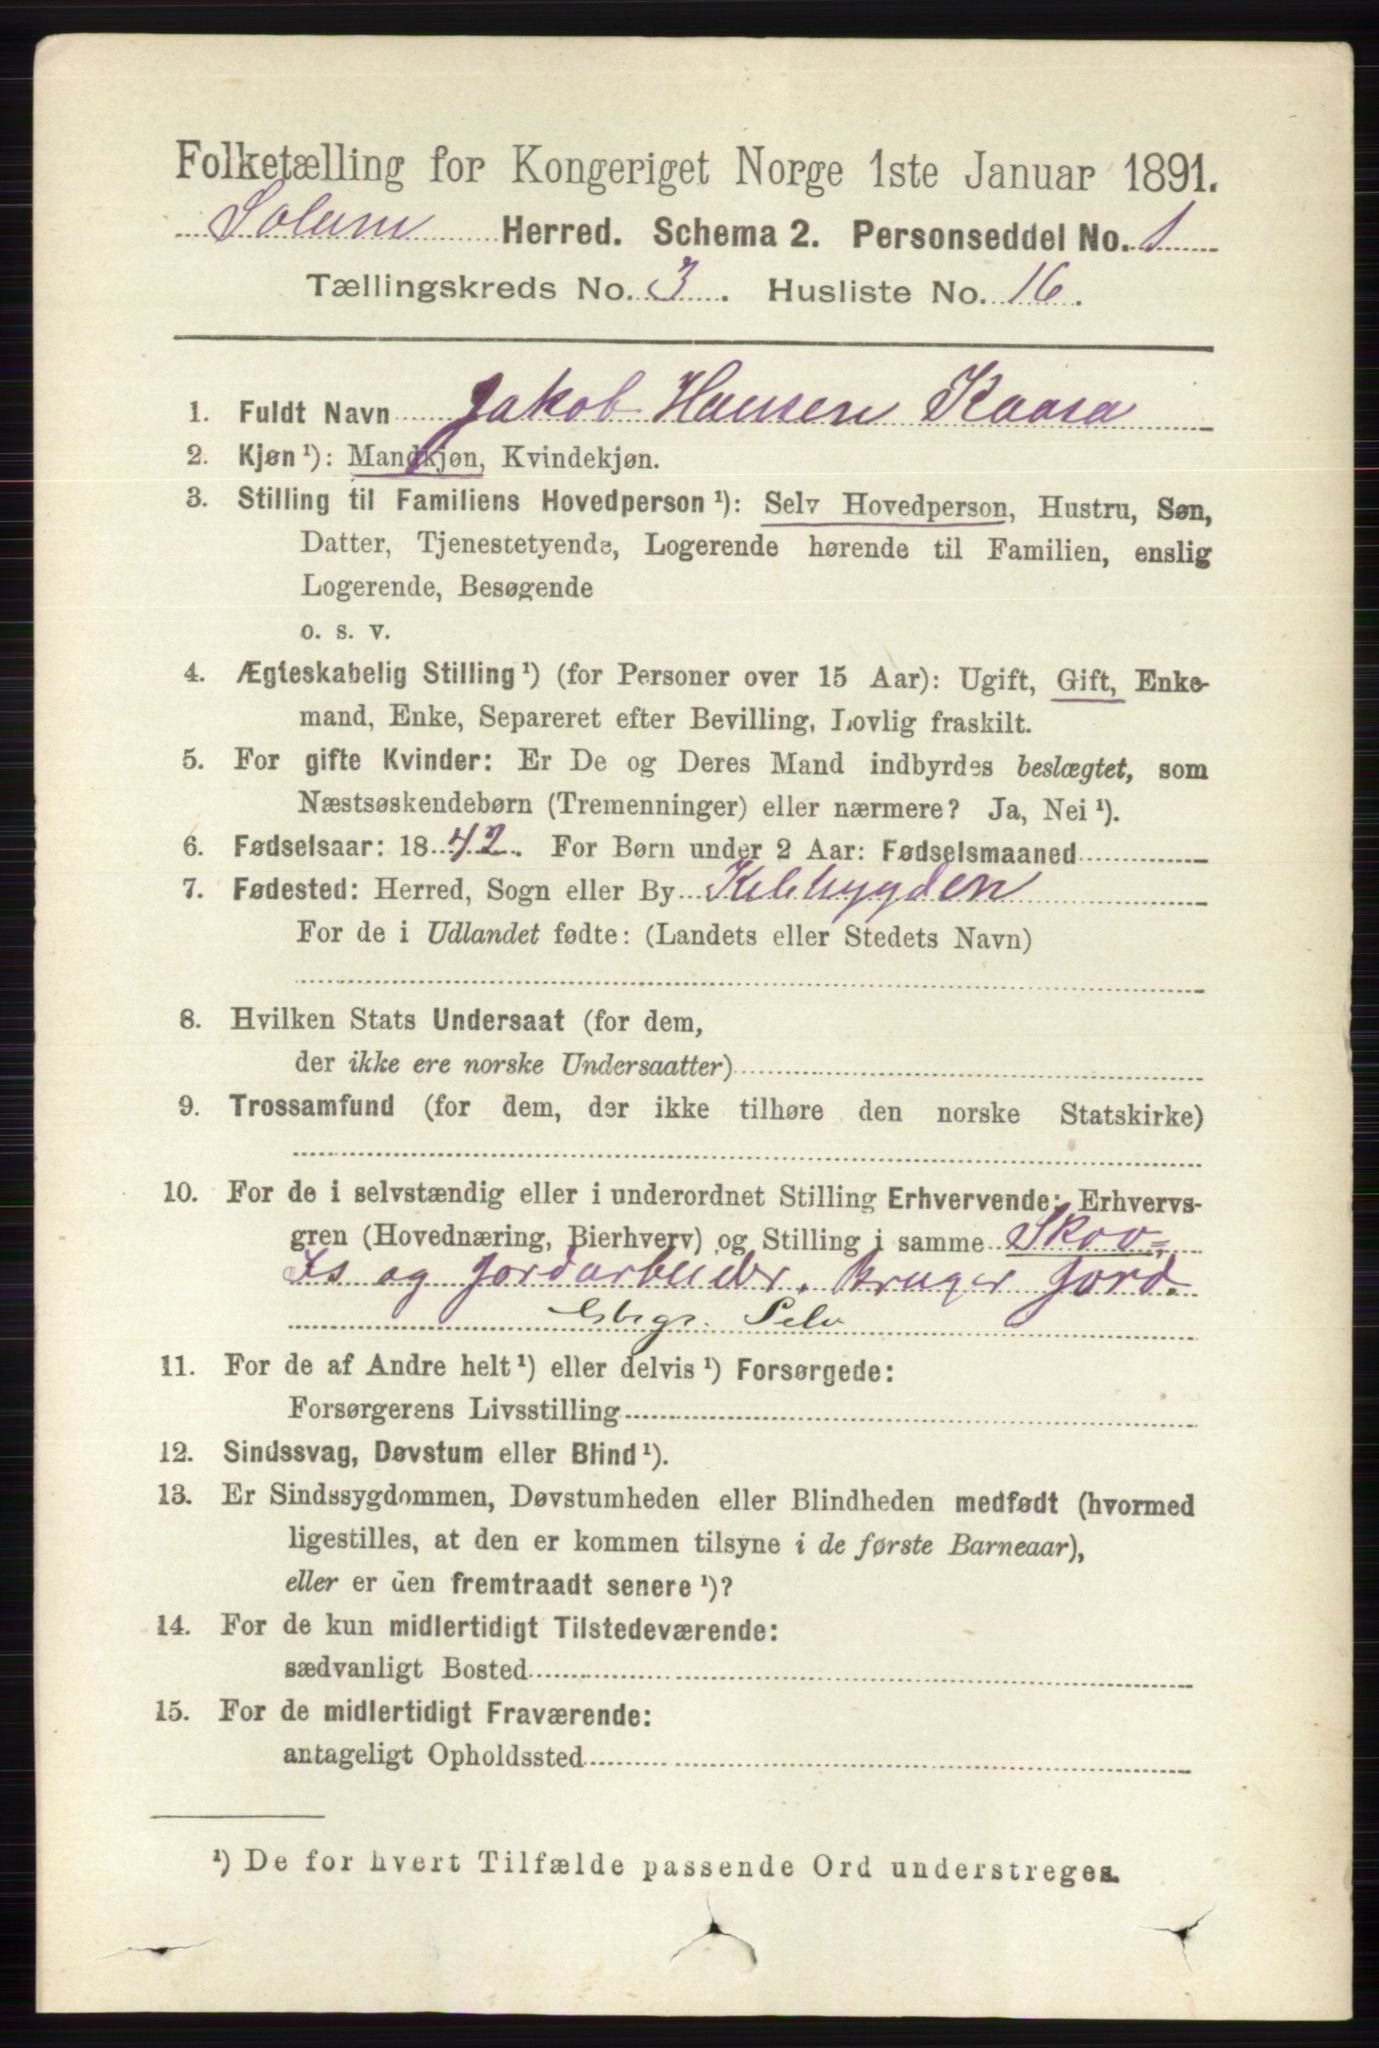 Folketælling for Kongeriget Norge 1ste Januar 1891.
Solum Herred. Schema 2. Personseddel No. 1
Tællingskreds No. 3. Husliste No. 16.
1. Fuldt Navn Jakob Hansen Kaasa
2. Kjøn ¹): Mandkjøn, Kvindekjøn.
3. Stilling til Familiens Hovedperson ¹): Selv Hovedperson, Hustru, Søn,
Datter, Tjenestetyende, Logerende hørende til Familien, enslig
Logerende, Besøgende
o. s. v.
4. Ægteskabelig Stilling ¹) (for Personer over 15 Aar): Ugift, Gift, Enke-
mand, Enke, Separeret efter Bevilling, Lovlig fraskilt.
5. For gifte Kvinder: Er De og Deres Mand indbyrdes beslægtet, som
Næstsøskendebørn (Tremenninger) eller nærmere? Ja, Nei ¹).
6. Fødselsaar: 1842. For Børn under 2 Aar: Fødselsmaaned
7. Fødested: Herred, Sogn eller By Kilebygden
For de i Udlandet fødte: (Landets eller Stedets Navn)
8. Hvilken Stats Undersaat (for dem,
der ikke ere norske Undersaatter)
9. Trossamfund (for dem, der ikke tilhøre den norske Statskirke)
10. For de i selvstændig eller i underordnet Stilling Erhvervende: Erhvervs-
gren (Hovednæring, Bierhverv) og Stilling i samme Skov=
Is og Jordarbeider. bruger Jord.
Selv
11. For de af Andre helt ¹) eller delvis ¹) Forsørgede:
Forsørgerens Livsstilling
12. Sindssvag, Døvstum eller Blind ¹).
13. Er Sindssygdommen, Døvstumheden eller Blindheden medfødt (hvormed
ligestilles, at den er kommen tilsyne i de første Barneaar),
eller er den fremtraadt senere ¹)?
14. For de kun midlertidigt Tilstedeværende:
sædvanligt Bosted
15. For de midlertidigt Fraværende:
antageligt Opholdssted
¹) De for hvert Tilfælde passende Ord understreges.